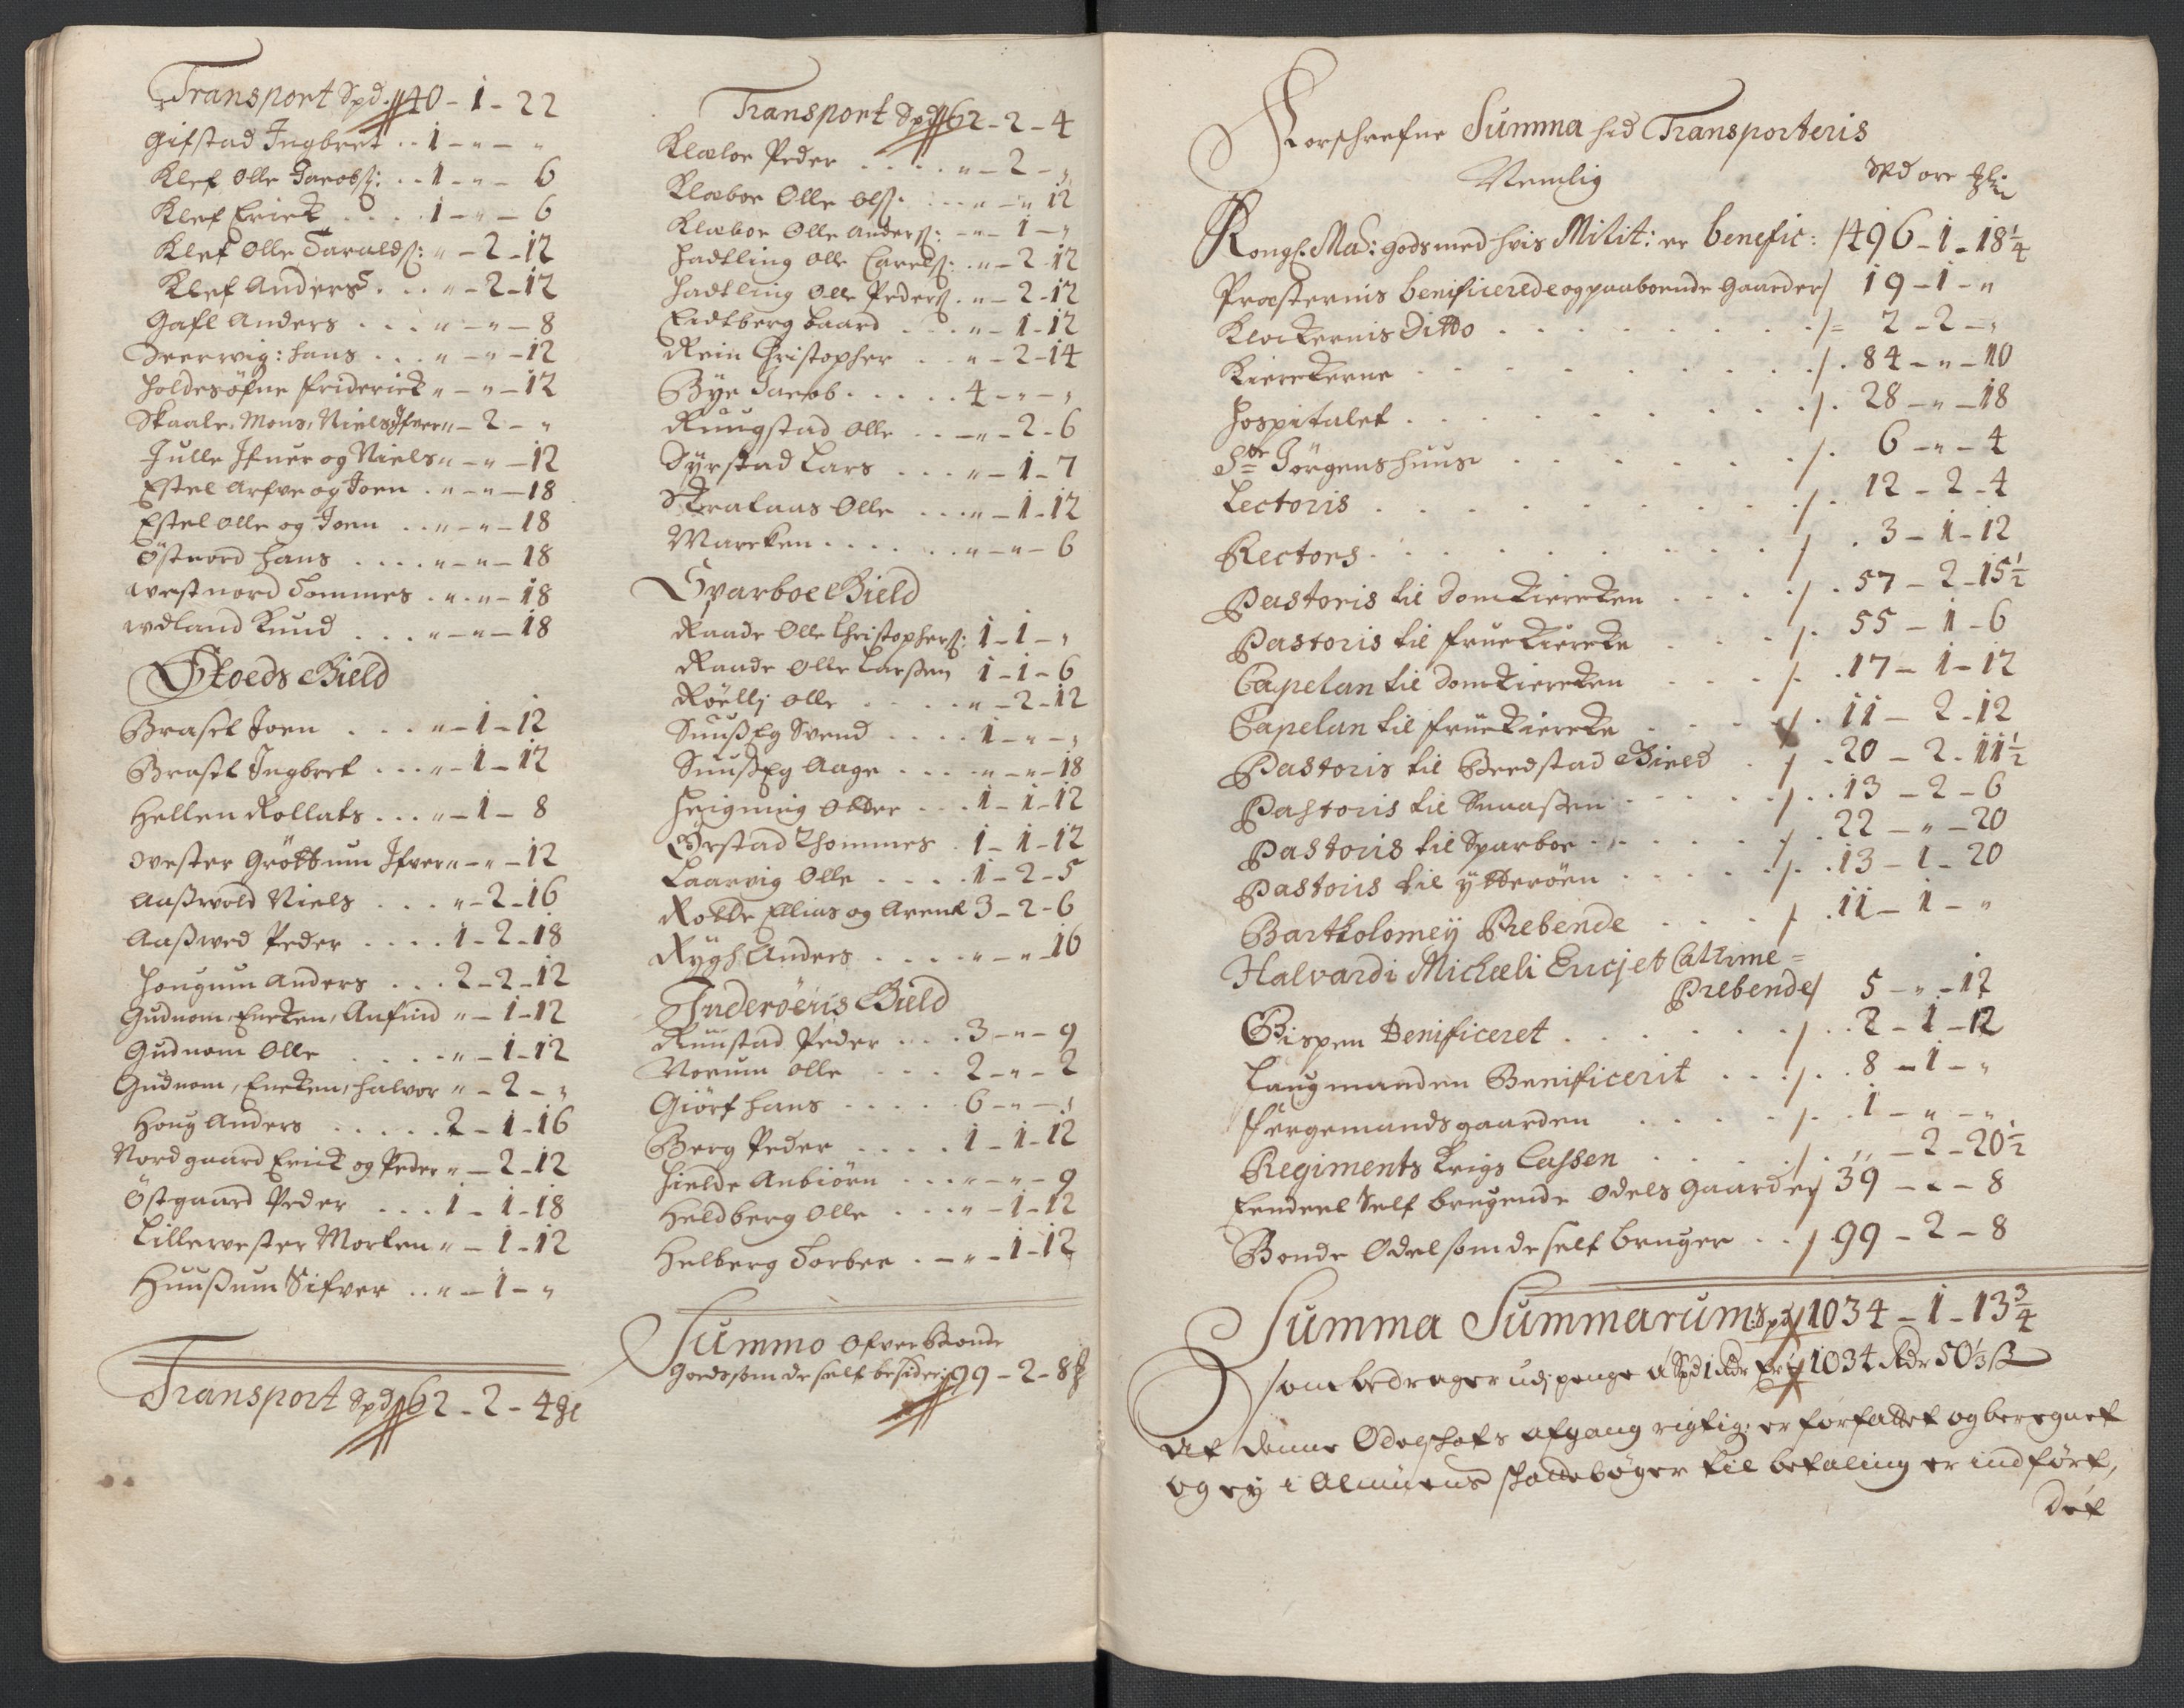 Transport Spd 40 - 1 - 22
Gifstad Ingbret .. 1 - " - "
Klef Olle Jacobß: .. 1 - " - 6
Klef Erick .... 1 - " - 6
Klef Olle Taraldß: " - 2 - 12
Klef Anders ... " - 2 - 12
Gafl Anders .... " - " - 8
Deerwig: hans ... " - " - 12
holdesøfne friderick " - " - 12
Skaale, Mons, Niels Ifver " - 2 - "
Julle Ifuer og Niels " - " - 12
Estel Arfve og Joen . " - " - 18
Estel Olle og Joen .. " - " - 18
Östnord hans .... " - " - 18
westnord Tommes . " - " - 18
wdland Knud ... " - " - 18
Stoeds Gield
Brasel Joen ... " - 1 - 12
Brasel Ingbret ... " - 1 - 12
Hellen Rollats ... " - 1 - 8
wester Gröttum Ifver " - " - 12
Aaßwold Niels ... " - 2 - 16
Aaßwed Peder .... 1 - 2 - 18
hougum Anders ... 2 - 2 - 12
Gudnom, Encken, Anfind " - 1 - 12
Gudnom Olle .... " - 1 - 12
Gudnom, Encken, halvor " - 2 - "
Houg Anders ..... 2 - 1 - 16
Nordgaard Erick og Peder " - 2 - 12
Östgaard Peder ... 1 - 1 - 18
Lillewester Morten " - 1 - 12
Huußum Sifver .. " - 1 - "
Transport Spd 62 - 2 - 4
Transport Spd 62 - 2 - 4
Klæboe Peder .... " - 2 - "
Klæboe Olle Olß. ... " - " 12
Klæboe Olle Anderß: - " - 1 - "
hadtling Olle Carelß: . " - 2 - 12
hadtling Olle Pederß . " - 2 - 12
Eidtberg baard ... " - 1 - 12
Rein Christopher .. " - 2 - 14
Bÿe Jacob ..... 4 - " - "
Ruugstad Olle .. - " - 2 - 6
Dÿrstad Lars .... " - 1 - 7
Skralaas Olle ... " - 1 - 12
Marcken ...... " - " - 6
Sparboe Gield
Raade Olle Christopherß: 1 - 1 - "
Raade Olle Larßen 1 - 1 - 6
Röellj Olle ..... " - 2 - 12
Suußeg Svend .... 1 - " - "
Suußeg Aage .... " - " - 18
heigning Otter ... 1 - 1 - 12
Örstad Thommes . 1 - 1 - 12
Laarvig Olle .... 1 - 2 - 5
Rotte Ellias og Arent 3 - 2 - 6
Rÿgh Anders .... " - " 16
Inderöens Gield
Ruustad Peder ... 3 - " - 9
Norum Olle .... 2 - " - 2
Giörf hans ..... 6 - " - "
Berg Peder .... 1 - 1 - 12
hielde Anbiörn ... " - " - 9
Heldberg Olle ... " - 1 - 12
Helberg Torber . - " - 1 - 12
Summa ofver bonde
Goeds som de self besider 99 - 2 - 8
Forschrefne Summa hid Transporteris
Nemlig Spd ore
Kongl: Ma: gods med hvis Milit: er benefic: 496 - 1 - 18 1/4
Præsternis benificerede og paaboende Gaarder 19 - 1 - "
Klockernis Ditto ........ 2 - 2 - "
Kierckerne ......... 84 - " - 10
hospitalet ......... 28 - " - 18
Ste Jörgens huus ....... 6 - " - 4
Lectoris ......... 12 - 2 - 4
Rectors ......... 3 - 1 - 12
Pastoris til Domkiercken .... 57 - 2 - 15 1/2
Pastoris til fruekiercke .... 55 - 1 - 6
Capelan til Domkiercken .... 17 - 1 - 12
Capelan til fruekiercke .... 11 - 2 - 12
Pastoris til Beedstad Gield .. 20 - 2 - 11 1/2
Pastoris til Snaaßen ..... 13 - 2 - 6
Pastoris til Sparboe ...... 22 - " - 20
Pastoris til ÿtterøen ..... 13 - 1 - 20
Bartholomeÿ Prebende .... 11 - 1 - "
Halvardi Michæli Encjet Cathrine =
Prebende 5 - " - 12
Bispen Benificeret ...... 2 - 1 - 12
Laugmanden Benificerit .... 8 - 1 - "
fergemands gaarden ..... 1 - " - "
Regiments Krigs Cassen ..... " - 2 - 20 1/2
Eendeel Self brugende Odels Gaarder 39 - 2 - 8
Bonde Odel som de self bruger .. 99 - 2 - 8
Summa Summarum: Spd 1034 - 1 - 13 3/4
som bedrager udj penge a Spd 1 Rdr er 1034 Rdr 50 1/3 ß
At denne Odelschats afgang rigtig: er forfattet og beregnet
og ej i Almuens schattebøger til betaling er indført,
det